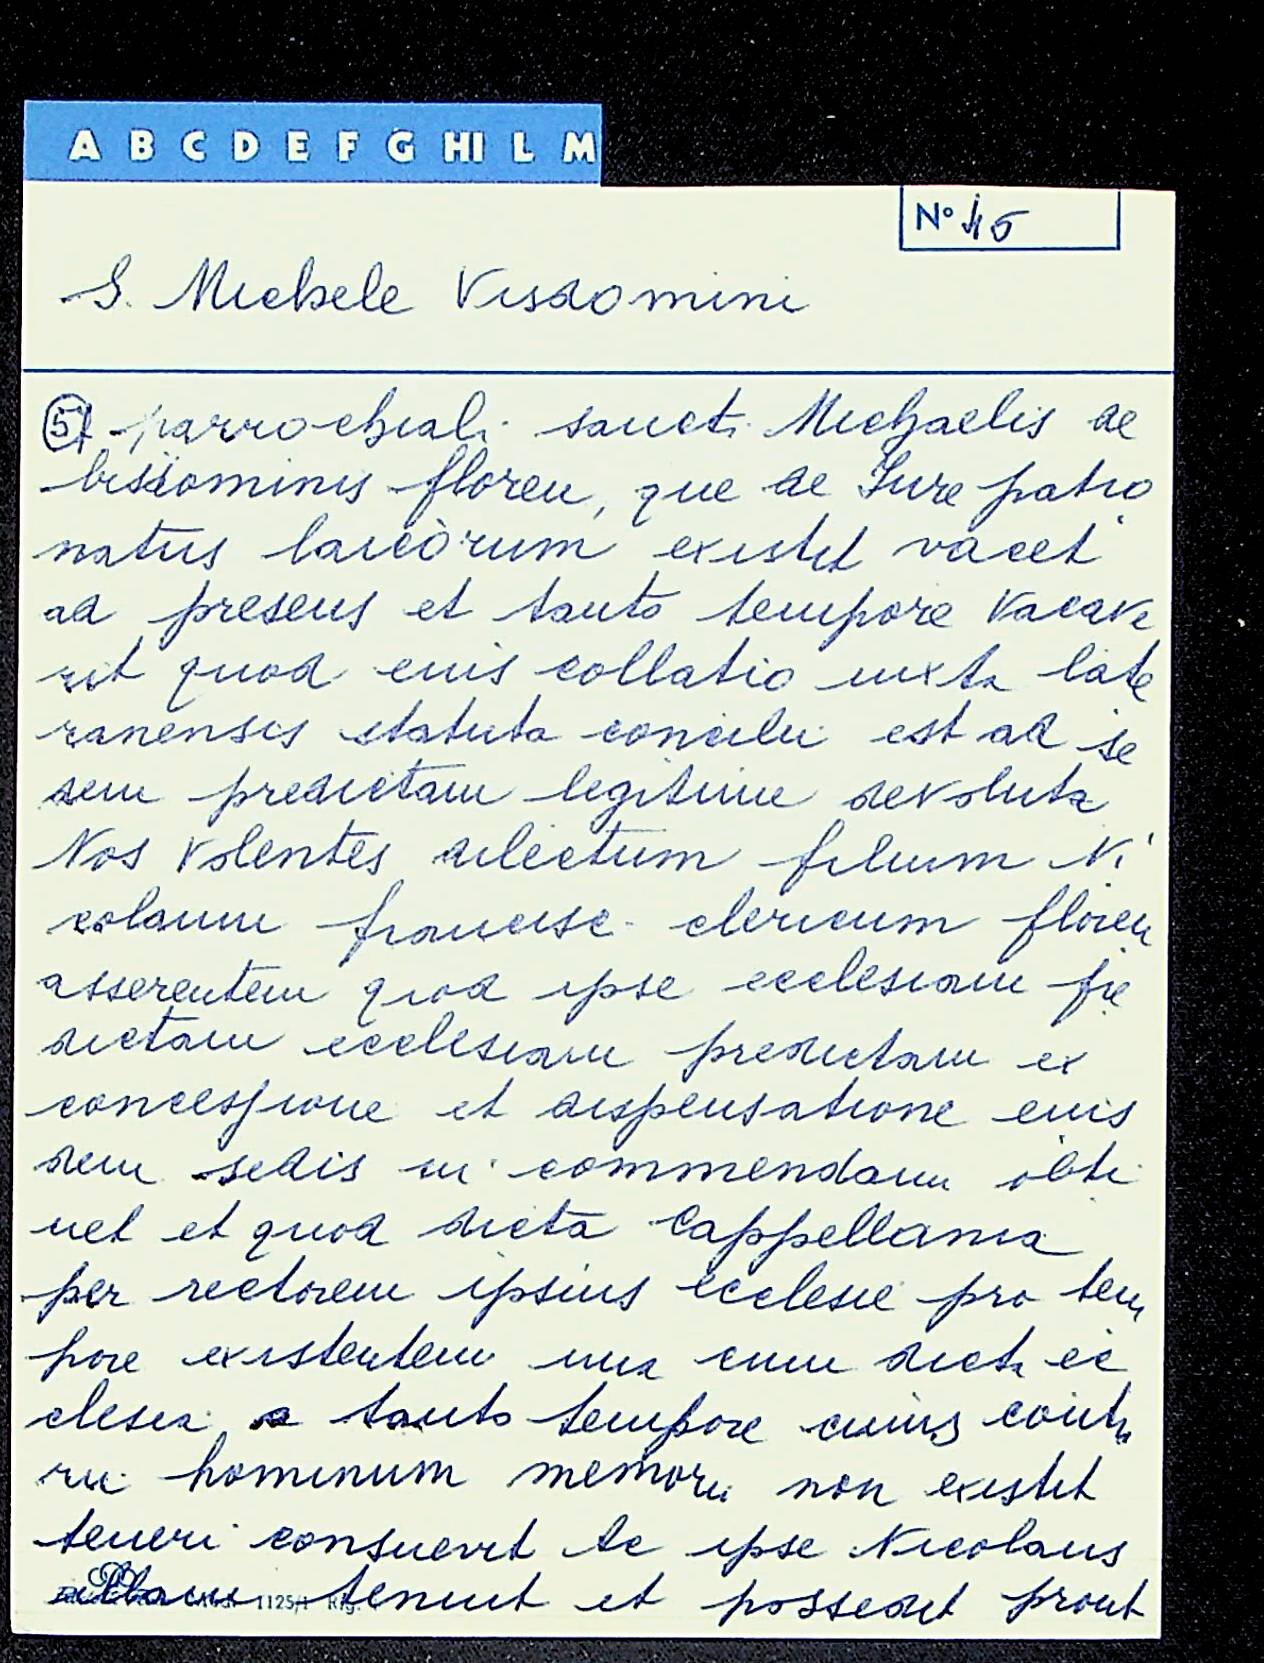 A B C D E F G HI L M
N° 45
S. Michele Visdomini
(5) parrochiali sancti Michaelis de
bisdominis floren, que de Iure patro
natus laicorum existit vacet
ad presens et tanto tempore vacave
rit quod eius collatio iuxta late
ranensis statuta concilii est ad se
dem predictam legitime devoluta
Nos volentes dilectum filium Ni
colaum francisci clericum floren
asserentem quod ipse ecclesiam pre
dictam ecclesiam predictam ex
concessione et dispensatione eius
dem sedis in commendam obti
net et quod dicta Cappellania
per rectorem ipsius ecclesie pro tem
pore existentem una cum dicta ec
clesia a tanto tempore cuius contra
rii hominum memoria non existit
teneri consuevit ac ipse Nicolaus
illam tenuit et possedit prout
1125/1 Rig.